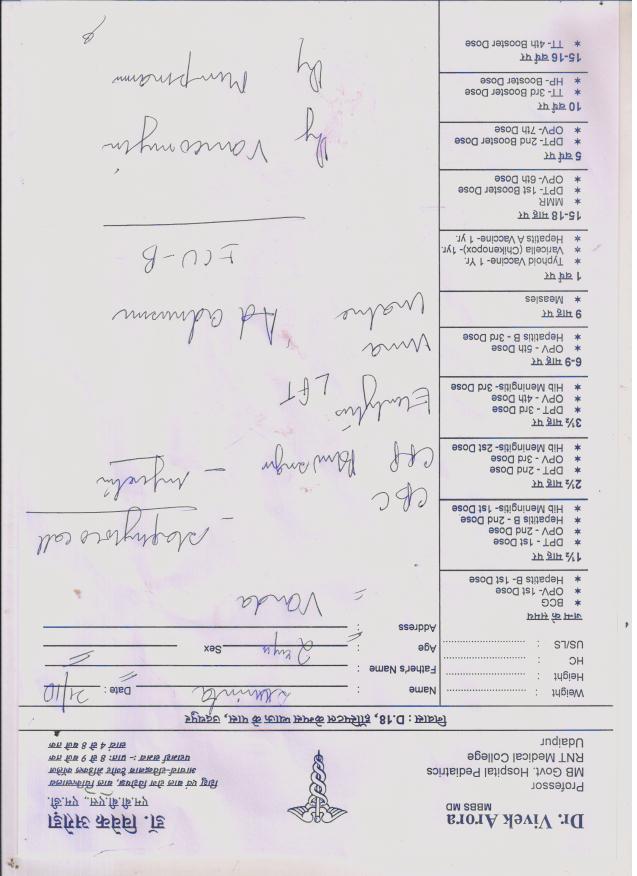 Dr. Vivek Arora
MBBS MD
Professor
MB Govt. Hospital Pediatrics
RNT Medical College
Udaipur
डॉ. विवेक अरोड़ा
एम.बी.बी.एस., एम.डी.
शिशु एवं बाल रोग विशेषज्ञ, बाल चिकित्सालय
आचार्य-रविन्द्रनाथ टैगोर मेडिकल कॉलेज
परामर्श समय :- प्रातः 8 से 9 बजे तक
सायं 4 से 8 बजे तक
निवास : D.18, हॉस्पिटल केम्पस प्याऊ के पास, उदयपुर
Weight :
Height :
HC :
US/LS :
Name : Date : 21/10
Father's Name :
Age : Sex
Address :
जन्म के समय
* BCG
* OPV- 1st Dose
* Hepatits B- 1st Dose
1½ माह पर
* DPT - 1st Dose
* OPV - 2nd Dose
* Hepatitis B - 2nd Dose
* Hib Meningitis- 1st Dose
2½ माह पर
* DPT - 2nd Dose
* OPV - 3rd Dose
* Hib Meningitis- 2st Dose
3½ माह पर
* DPT - 3rd Dose
* OPV - 4th Dose
* Hib Meningitis- 3rd Dose
6-9 माह पर
* OPV - 5th Dose
* Hepatitis B - 3rd Dose
9 माह पर
* Measles
1 वर्ष पर
* Typhoid Vaccine- 1 Yr.
* Varicella (Chikenopox)- 1yr.
* Hepatits A Vaccine- 1 yr.
15-18 माह पर
* MMR
* DPT- 1st Booster Dose
* OPV- 6th Dose
5 वर्ष पर
* DPT- 2nd Booster Dose
* OPV- 7th Dose
10 वर्ष पर
* TT- 3rd Booster Dose
* HP- Booster Dose
15-16 वर्ष पर
* TT- 4th Booster Dose
CBC
CRP
LFT
Urea
Ad admission
ICU-B